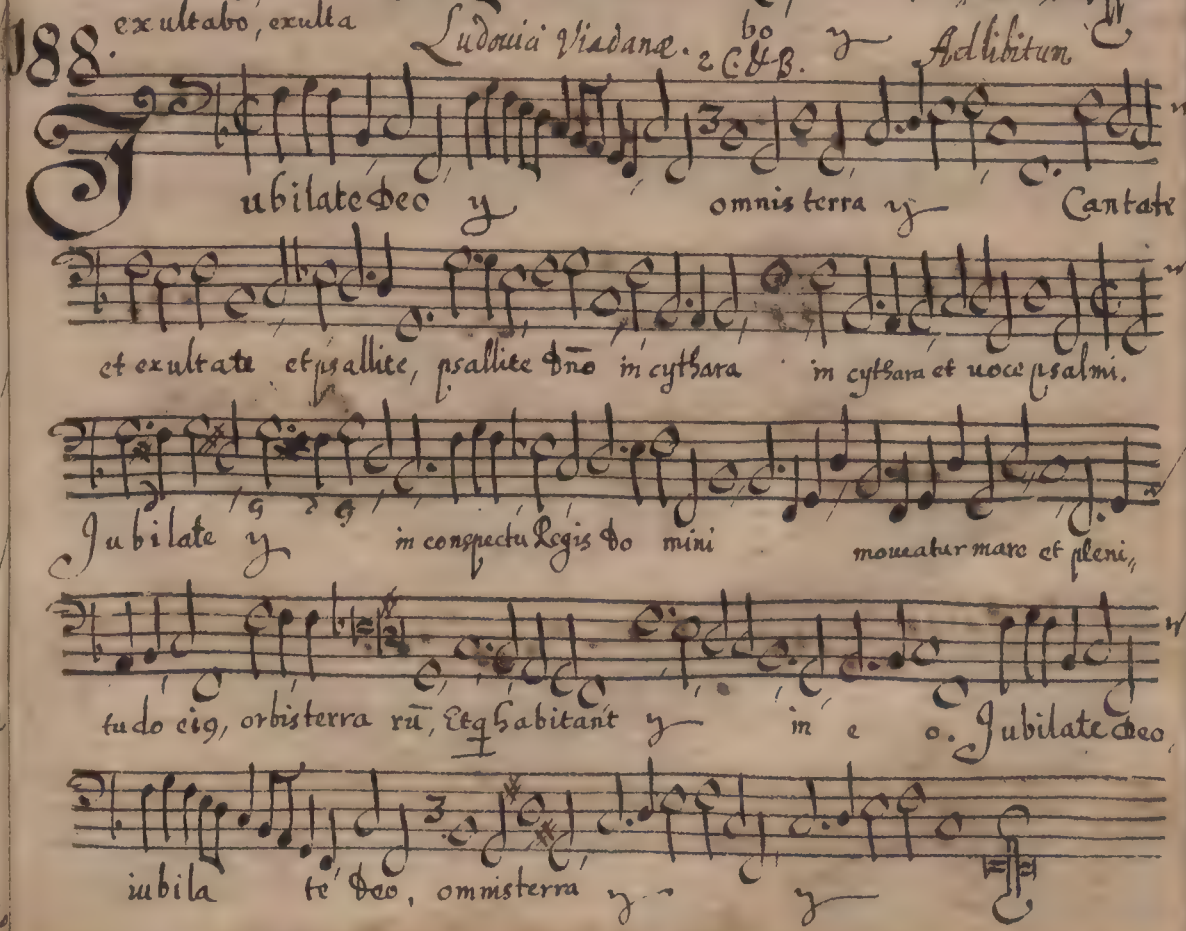 exultabo, exulta bo y
188. Ludouici Viadanæ. 2 C. & B. Ad libitum
Jubilate Deo y omnis terra y Cantate
et exultate et psallite, psallite Dño in cythara in cythara et uoce psalmi.
Jubilate y in conspectu Regis Do mini moueatur mare et pleni„
tudo eiꝯ, orbis terra rū, Et q habitant y in e o. Jubilate Deo,
iubila te Deo, omnis terra y y